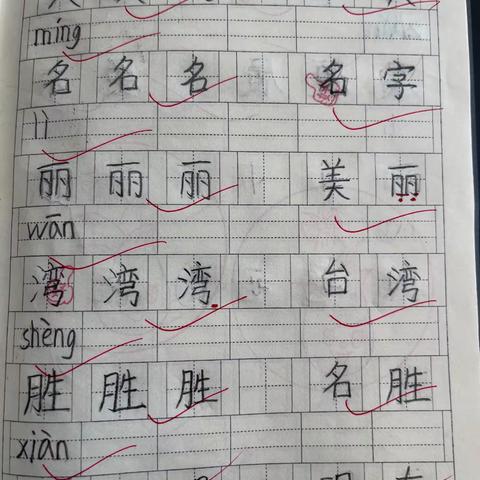 míng
名 名 名 名 字
lì
丽 丽 丽 美 丽
wān
湾 湾 湾 台 湾
shèng
胜 胜 胜 名 胜
xiàn